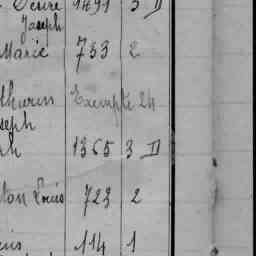 Désiré 1491 3 D
Joseph
Marie 733 2
thurin Exempté 24
seph
ph 1365 3 D
ton Louis 723 2
uis 114 1